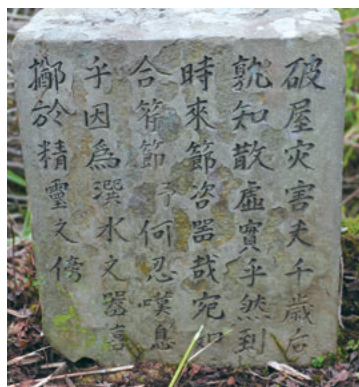 破屋灾害夫千歳后
孰知散虛實乎然到
時來節咨噐哉宛如
合符節予何忍嘆息
乎因為潠水文噐喜
擲於精靈文傍